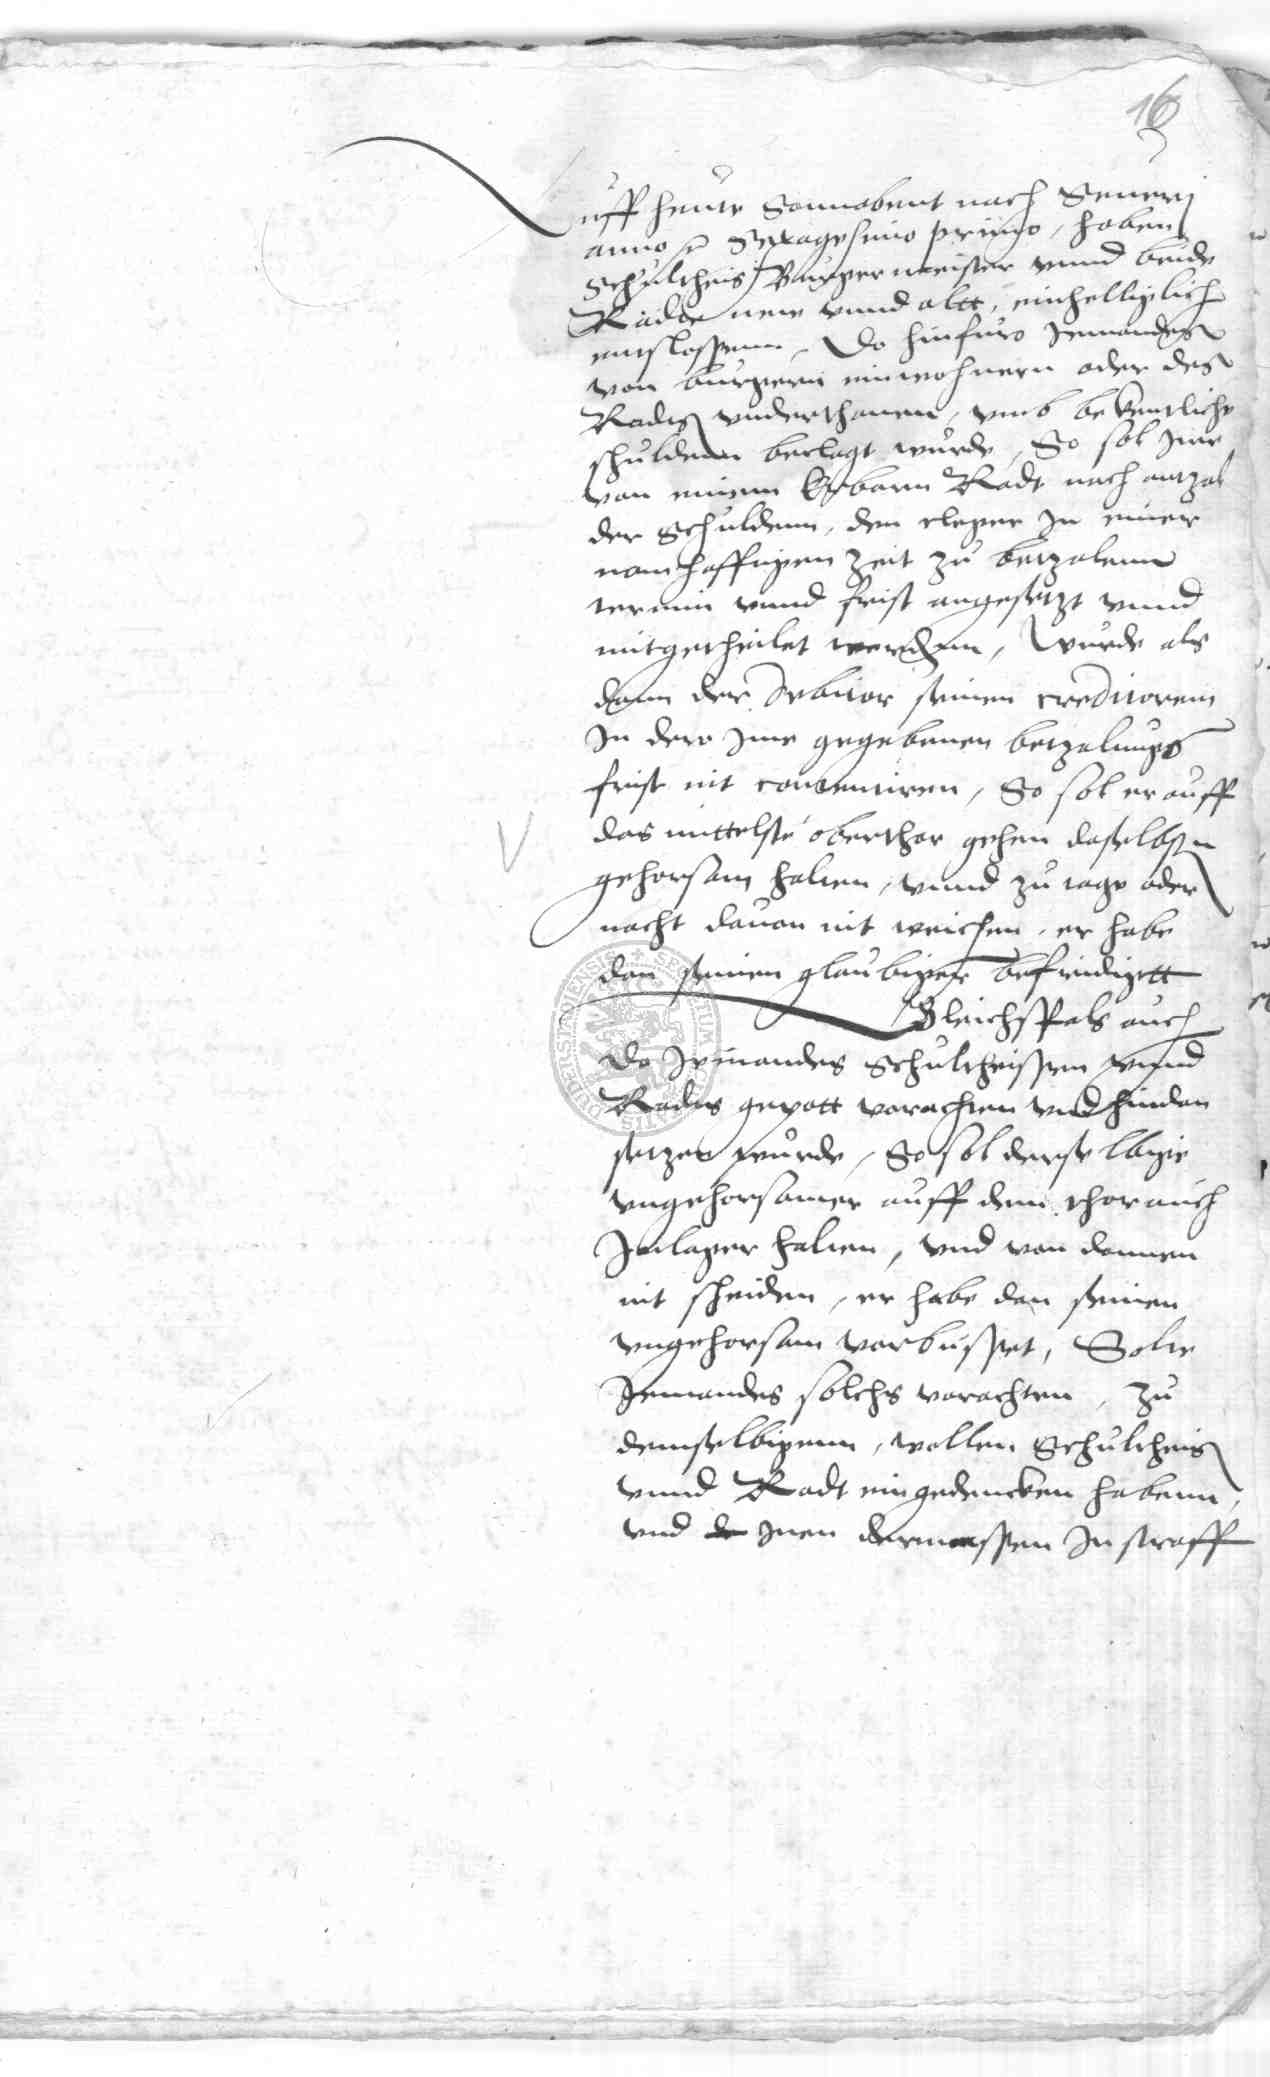 16
uff heute Sonnabent nach Seueri
anno ꝛc Sexagesimo primo, haben
Schultheis, Burgermeister vnnd beide
Rädte neue vnnd altt, einhelliglich
entslossenn, Do hinfuro Jemandes
von burgern einwohnern oder des
Radts vnderthanen, vmb bekentliche
schuldenn beclagt wurde, So sol Jme
von einem Erbarn Radt nach antzal
der Schuldenn, den cleger In einer
namhafftigen Zeit zu betzalenn
termin vnnd frist angesetzt vnnd
mitgetheilet werdenn, Wurde als
dann der debitor seinen creditorem
In dero Jme gegebenen betzalungs
frist nit contentiren, So sol er auff
das mittelste oberthor gehen daselbsten
gehorsam halten, vnnd zu tage oder
nacht dauon nit weichen, er habe
dan seinen glaubiger befridigett
Gleichsfals auch
do Jemandes Schultheissen vnnd
Radts gepott vorachten vnd hindan
setzen wurde, So sol derselbige
vngehorsamer auff dem thor auch
Inlager halten, vnd von dannen
nit scheiden, er habe dan seinen
vngehorsam vorbusset, Solte
Jemandes solchs vorachten, zu
demselbigenn, wollen Schultheis
vnnd Radt eingedencken habenn,
vnd Jnen dermassen In straff